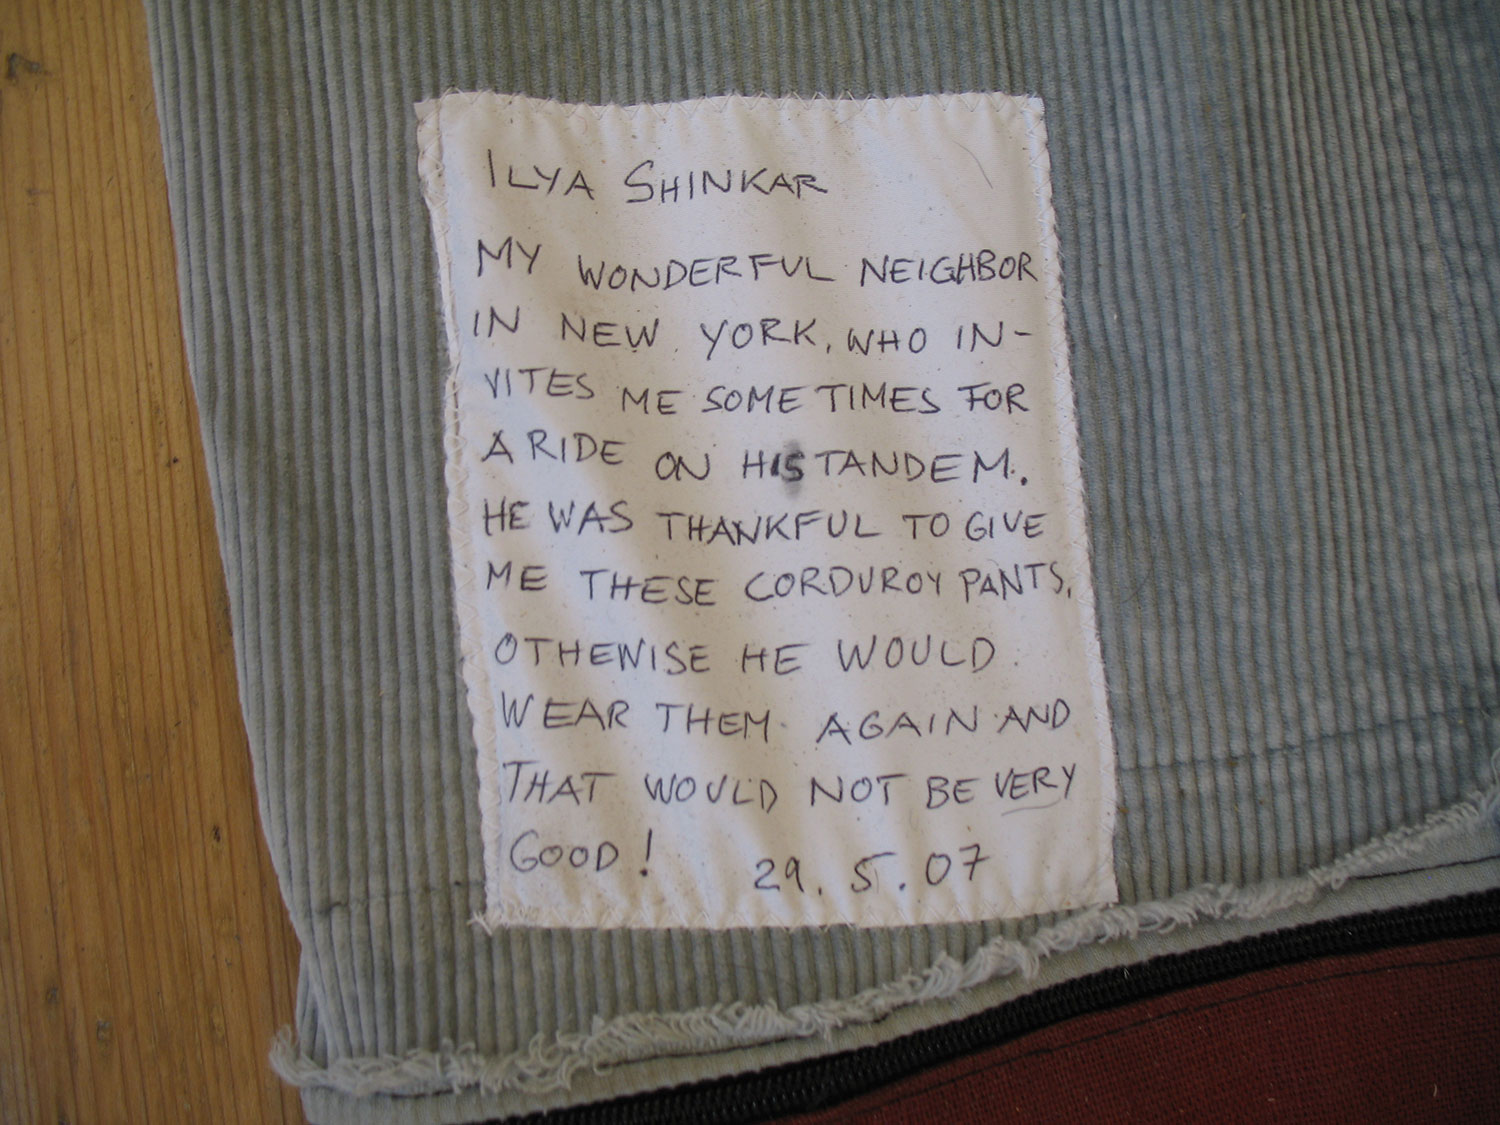 ILYA SHINKAR
MY WONDERFUL NEIGHBOR
IN NEW YORK, WHO IN-
VITES ME SOMETIMES FOR
A RIDE ON HIS TANDEM.
HE WAS THANKFUL TO GIVE
ME THESE CORDUROY PANTS,
OTHEWISE HE WOULD
WEAR THEM AGAIN AND
THAT WOULD NOT BE VERY
GOOD! 29.5.07